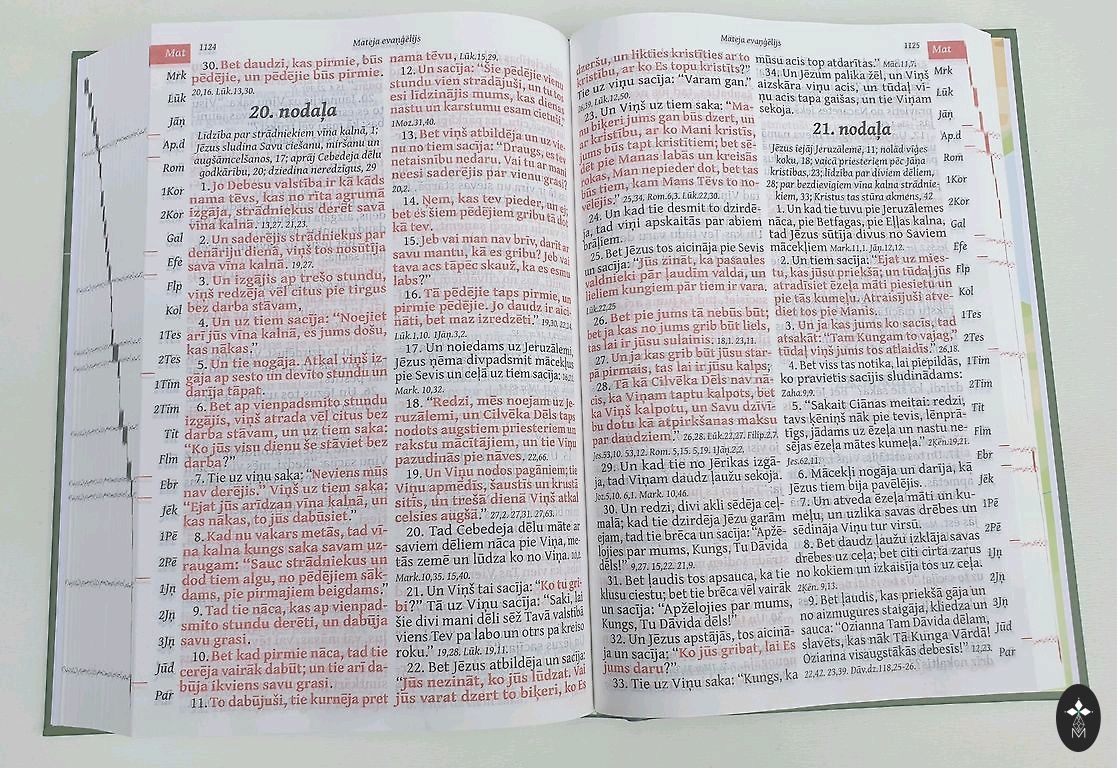 Mat
1124
Mateja evaņģēlijs
Mrk
Lūk
Jāņ
Ap.d
Rom
1Kor
2Kor
Gal
Efe
Flp
Kol
1Tes
2Tes
1Tim
2Tim
Tit
Flm
Ebr
Jēk
1Pē
2Pē
1Jņ
2Jņ
3Jņ
Jūd
Par
30. Bet daudzi, kas pirmie, būs
pēdējie, un pēdējie būs pirmie.
20,16. Lūk.13,30.
20. nodaļa
Līdzība par strādniekiem vīna kalnā, 1;
Jēzus sludina Savu ciešanu, miršanu un
augšāmcelšanos, 17; aprāj Cebedeja dēlu
godkārību, 20; dziedina neredzīgus, 29
1. Jo Debesu valstība ir kā kāds
nama tēvs, kas no rīta agrumā
izgāja, strādniekus derēt savā
vīna kalnā. 13,27. 21,23.
2. Un saderējis strādniekus par
denāriju dienā, viņš tos nosūtīja
savā vīna kalnā. 19,27.
3. Un izgājis ap trešo stundu,
viņš redzēja vēl citus pie tirgus
bez darba stāvam,
4. Un uz tiem sacīja: “Noejiet
arī jūs vīna kalnā, es jums došu,
kas nākas.”
5. Un tie nogāja. Atkal viņš iz-
gāja ap sesto un devīto stundu un
darīja tāpat.
6. Bet ap vienpadsmito stundu
izgājis, viņš atrada vēl citus bez
darba stāvam, un uz tiem saka:
“Ko jūs visu dienu še stāviet bez
darba?”
7. Tie uz viņu saka: “Neviens mūs
nav derējis.” Viņš uz tiem saka:
“Ejat jūs arīdzan vīna kalnā, un
kas nākas, to jūs dabūsiet.”
8. Kad nu vakars metās, tad vī-
na kalna kungs saka savam uz-
raugam: “Sauc strādniekus un
dod tiem algu, no pēdējiem sāk-
dams, pie pirmajiem beigdams.”
9. Tad tie nāca, kas ap vienpad-
smito stundu derēti, un dabūja
savu grasi.
10. Bet kad pirmie nāca, tad tie
cerēja vairāk dabūt; un tie arī da-
būja ikviens savu grasi.
11. To dabūjuši, tie kurnēja pret
nama tēvu, Lūk.15,29.
12. Un sacīja: “Šie pēdējie vienu
stundu vien strādājuši, un tu tos
esi līdzinājis mums, kas dienas
nastu un karstumu esam cietuši.”
1Moz.31,40.
13. Bet viņš atbildēja un uz vie-
nu no tiem sacīja: “Draugs, es tev
netaisnību nedaru. Vai tu ar mani
neesi saderējis par vienu grasi?
20,2.
14. Ņem, kas tev pieder, un ej;
bet es šiem pēdējiem gribu tā dot
kā tev.
15. Jeb vai man nav brīv, darīt ar
savu mantu, kā es gribu? Jeb vai
tava acs tāpēc skauž, ka es esmu
labs?”
16. Tā pēdējie taps pirmie, un
pirmie pēdējie. Jo daudz ir aici-
nāti, bet maz izredzēti.” 19,30. 22,14.
Lūk.1,10. 1Jāņ.3,2.
17. Un noiedams uz Jeruzālemi,
Jēzus ņēma divpadsmit mācekļus
pie Sevis un ceļā uz tiem sacīja: 16,21.
Mark. 10,32.
18. “Redzi, mēs noejam uz Je-
ruzālemi, un Cilvēka Dēls taps
nodots augstiem priesteriem un
rakstu mācītājiem, un tie Viņu
pazudinās pie nāves, 22,66.
19. Un Viņu nodos pagāniem; tie
Viņu apmēdīs, šaustīs un krustā
sitīs, un trešā dienā Viņš atkal
celsies augšā.” 27,2. 27,31. 27,63.
20. Tad Cebedeja dēlu māte ar
saviem dēliem nāca pie Viņa, me-
tās zemē un lūdza ko no Viņa.
Mark.10,35. 15,40.
21. Un Viņš tai sacīja: “Ko tu gri-
bi?” Tā uz Viņu sacīja: “Saki, lai
šie divi mani dēli sēž Tavā valstībā
viens Tev pa labo un otrs pa kreiso
roku.” 19,28. Lūk. 19,11.
22. Bet Jēzus atbildēja un sacīja:
“Jūs nezināt, ko jūs lūdzat. Vai
jūs varat dzert to biķeri, ko Es
Mateja evaņģēlijs
1125
Mat
dzeršu, un likties kristīties ar to
kristību, ar ko Es topu kristīts?”
Tie uz Viņu sacīja: “Varam gan.”
26,39. Lūk.12,50.
23. Un Viņš uz tiem saka: “Ma-
nu biķeri jums gan būs dzert, un
ar kristību, ar ko Mani kristīs,
jums būs tapt kristītiem; bet sē-
dēt pie Manas labās un kreisās
rokas, Man nepieder dot, bet tas
būs tiem, kam Mans Tēvs to no-
vēlējis.” 25,34. Rom.6,3. Lūk.22,30.
24. Un kad tie desmit to dzirdē-
ja, tad viņi apskaitās par abiem
brāļiem.
25. Bet Jēzus tos aicināja pie Sevis
un sacīja: “Jūs zināt, ka pasaules
valdnieki pār ļaudīm valda, un
lieliem kungiem pār tiem ir vara.
Lūk.22,25
26. Bet pie jums tā nebūs būt;
bet ja kas no jums grib būt liels,
tas lai ir jūsu sulainis. 18,1. 23,11.
27. Un ja kas grib būt jūsu star-
pā pirmais, tas lai ir jūsu kalps;
28. Tā kā Cilvēka Dēls nav nā-
cis, ka Viņam taptu kalpots, bet
ka Viņš kalpotu, un Savu dzīvī-
bu dotu kā atpirkšanas maksu
par daudziem.” 26,28. Lūk.22,27. Filip.2,7.
Jes.53,10. 53,12. Rom. 5,15. 5,19. 1Jāņ.2,2.
29. Un kad tie no Jērikas izgā-
ja, tad Viņam daudz ļaužu sekoja.
Joz.5,10. 6,1. Mark. 10,46.
30. Un redzi, divi akli sēdēja ceļ-
malā; kad tie dzirdēja Jēzu garām
ejam, tad tie brēca un sacīja: “Apžē-
lojies par mums, Kungs, Tu Dāvida
dēls!” 9,27. 15,22. 21,9.
31. Bet ļaudis tos apsauca, ka tie
klusu ciestu; bet tie brēca vēl vairāk
un sacīja: “Apžēlojies par mums,
Kungs, Tu Dāvida dēls!”
32. Un Jēzus apstājās, tos aicinā-
ja un sacīja: “Ko jūs gribat, lai Es
jums daru?”
33. Tie uz Viņu saka: “Kungs, ka
mūsu acis top atdarītas.” Māc.11,7.
34. Un Jēzum palika žēl, un Viņš
aizskāra viņu acis, un tūdaļ vi-
ņu acis tapa gaišas, un tie Viņam
sekoja.
21. nodaļa
Jēzus iejāj Jeruzālemē, 11; nolād vīģes
koku, 18; vaicā priesteriem pēc Jāņa
kristības, 23; līdzība par diviem dēliem,
28; par bezdievīgiem vīna kalna strādnie-
kiem, 33; Kristus tas stūra akmens, 42
1. Un kad tie tuvu pie Jeruzālemes
nāca, pie Betfagas, pie Eļļas kalna,
tad Jēzus sūtīja divus no Saviem
mācekļiem Mark.11,1. Jāņ.12,12.
2. Un tiem sacīja: “Ejat uz mies-
tu, kas jūsu priekšā; un tūdaļ jūs
atradīsiet ēzeļa māti piesietu un
pie tās kumeļu. Atraisījuši atve-
diet tos pie Manis.
3. Un ja kas jums ko sacīs, tad
atsakāt: “Tam Kungam to vajag,”
tūdaļ viņš jums tos atlaidīs.” 26,18.
4. Bet viss tas notika, lai piepildās,
ko pravietis sacījis sludinādams:
Zaha.9,9.
5. “Sakait Ciānas meitai: redzi,
tavs ķēniņš nāk pie tevis, lēnprā-
tīgs, jādams uz ēzeļa un nastu ne-
sējas ēzeļa mātes kumeļa.” 2Ķēn.19,21.
Jes.62,11.
6. Mācekļi nogāja un darīja, kā
Jēzus tiem bija pavēlējis.
7. Un atveda ēzeļa māti un ku-
meļu, un uzlika savas drēbes un
sēdināja Viņu tur virsū.
8. Bet daudz ļaužu izklāja savas
drēbes uz ceļa; bet citi cirta zarus
no kokiem un izkaisīja tos uz ceļa.
2Ķēn. 9,13.
9. Bet ļaudis, kas priekšā gāja un
no aizmugures staigāja, kliedza un
sauca: “Ozianna Tam Dāvida dēlam,
slavēts, kas nāk Tā Kunga Vārdā!
Ozianna visaugstākās debesīs!” 12,23.
22,42. 23,39. Dāv.dz.118,25-26.
Mrk
Lūk
Jāņ
Ap.d
Rom
1Kor
2Kor
Gal
Efe
Flp
Kol
1Tes
2Tes
1Tim
2Tim
Tit
Flm
Ebr
Jēk
1Pē
2Pē
1Jņ
2Jņ
3Jņ
Jūd
Par